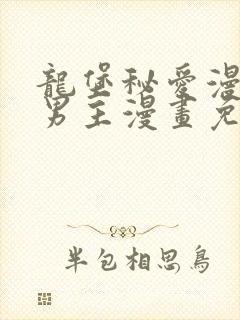 龍堡秘愛漫
男主漫畫免
半包相思鳥